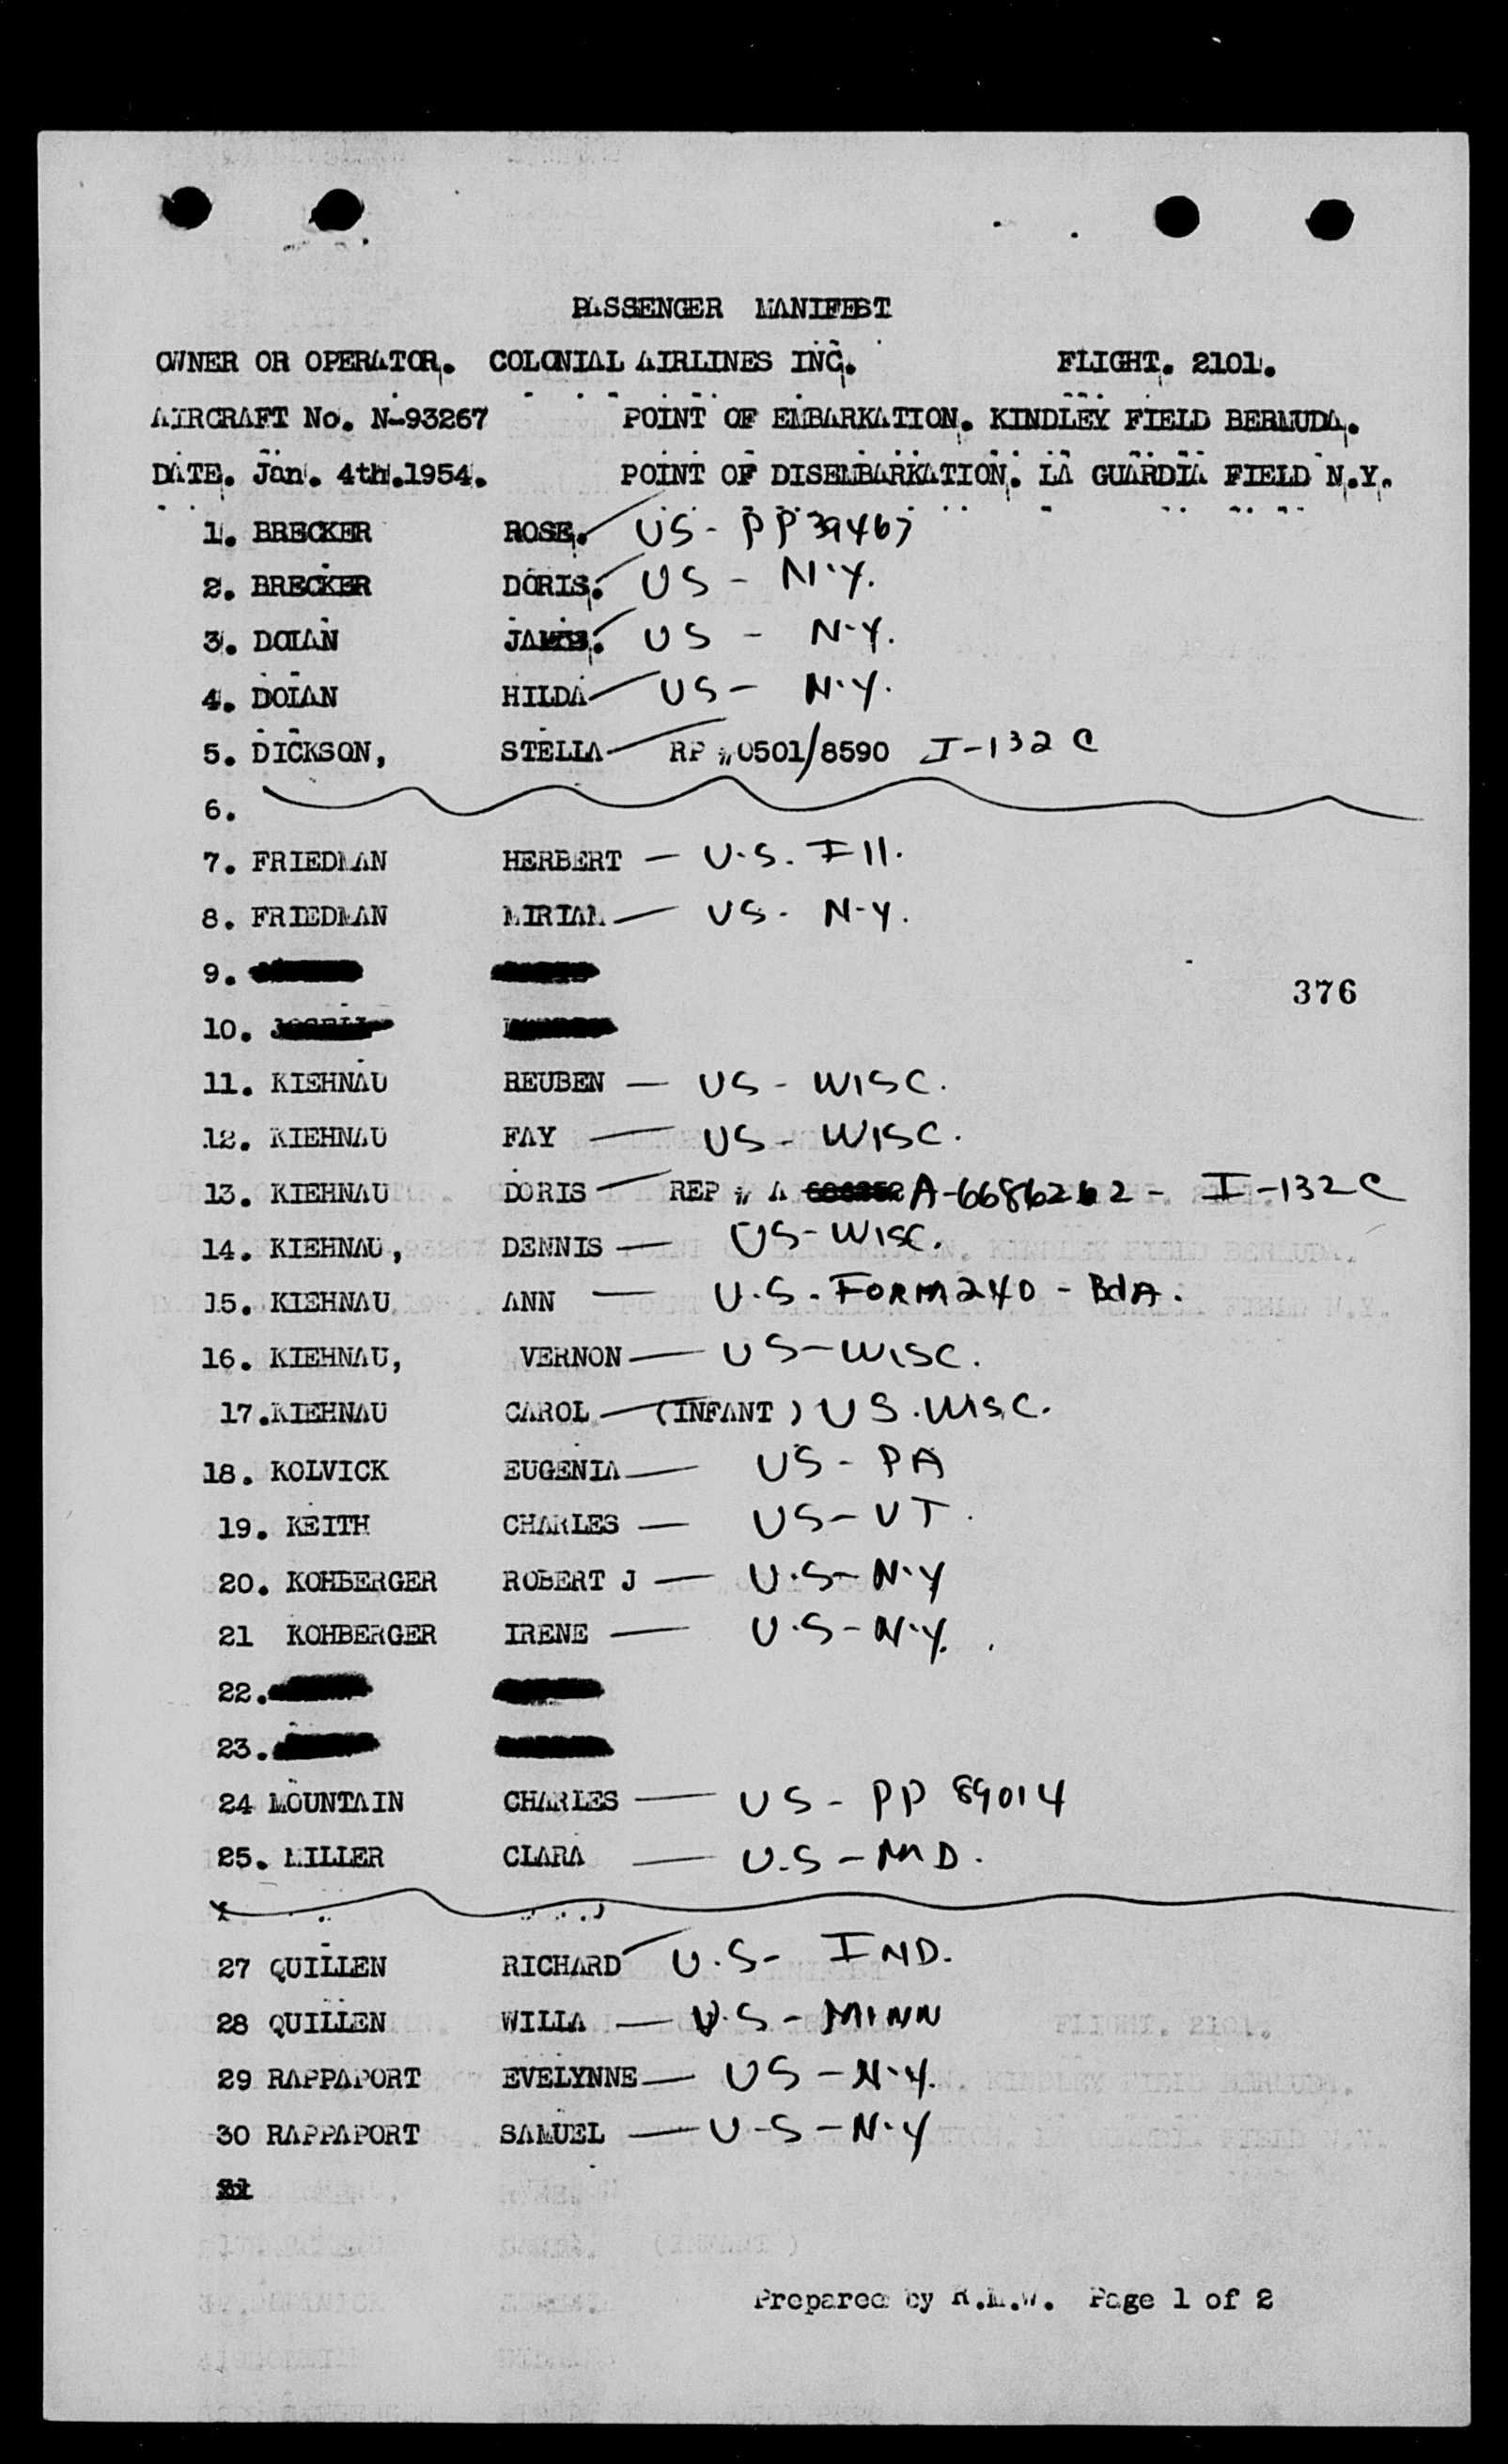 PASSENGER MANIFEST
OWNER OR OPERATOR. COLONIAL AIRLINES INC. FLIGHT. 2101.
AIRCRAFT No. N-93267 POINT OF EMBARKATION. KINDLEY FIELD BERMUDA.
DATE. Jan. 4th.1954. POINT OF DISEMBARKATION. LA GUARDIA FIELD N.Y.
1. BRECKER ROSE. US - PP 39467
2. BRECKER DORIS. US - N.Y.
3. DOLAN JAMES. US - N.Y.
4. DOLAN HILDA US - N.Y.
5. DICKSON, STELLA RP # 0501/8590 I-132 C
6.
7. FRIEDMAN HERBERT - U.S. Ill.
8. FRIEDMAN MIRIAM - US - N.Y.
9.
376
10.
11. KIEHNAU REUBEN - US - WISC.
12. KIEHNAU FAY - US - WISC.
13. KIEHNAU DORIS - REP # A A-6686262 - I-132 C
14. KIEHNAU, DENNIS - US-WISC.
15. KIEHNAU ANN - U.S. FORM 240 - BdA.
16. KIEHNAU, VERNON - US-WISC.
17.KIEHNAU CAROL - (INFANT) US. WISC.
18. KOLVICK EUGENIA - US - PA
19. KEITH CHARLES - US-VT.
20. KOHBERGER ROBERT J - U.S-N.Y
21 KOHBERGER IRENE - U.S-N.Y.
22.
23.
24 MOUNTAIN CHARLES - US - PP 89014
25. MILLER CLARA - U.S - MD.
27 QUILLEN RICHARD U.S- IND.
28 QUILLEN WILLA - U.S - MINN
29 RAPPAPORT EVELYNNE - US - N.Y.
30 RAPPAPORT SAMUEL - U-S-N.Y
Prepared by R.M.W. Page 1 of 2